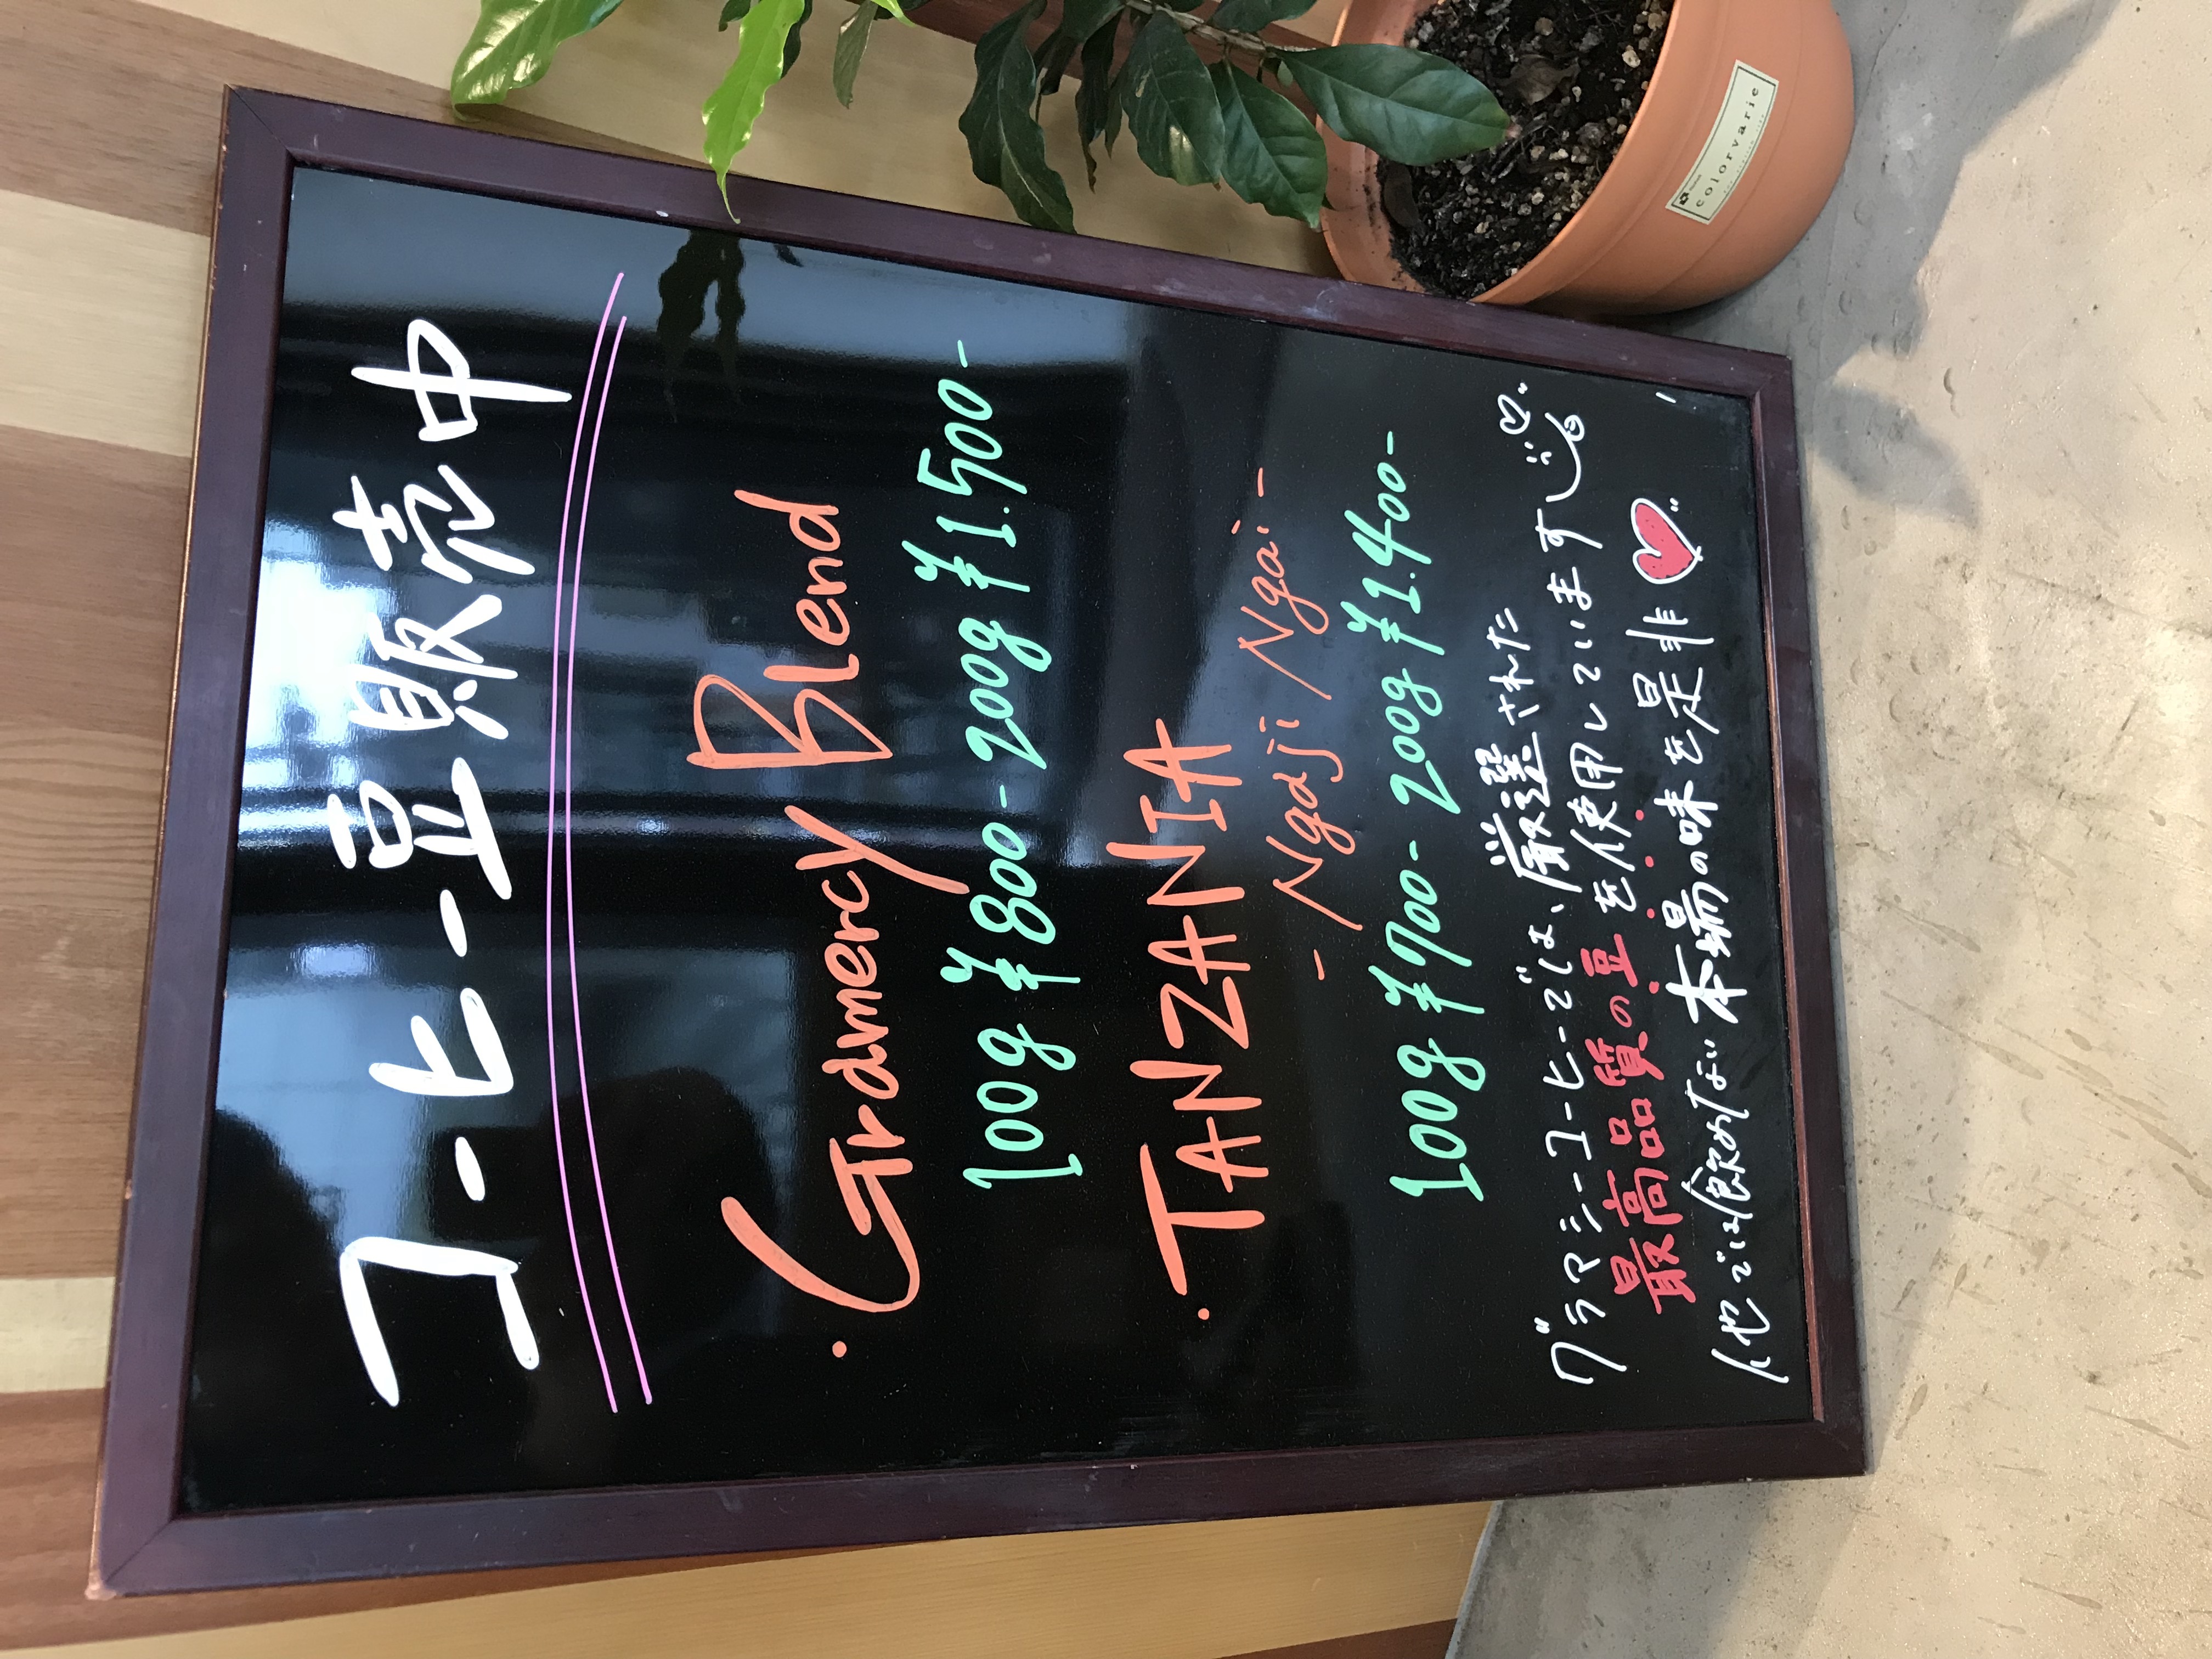 コーヒー豆販売中
・Gramercy Blend
100g ¥800- 200g ¥1.500-
・TANZANIA
- Ngdji Ngai -
100g ¥700- 200g ¥1.400-
グラマシーコーヒーでは、厳選された
最高品質の豆を使用しています
他では飲めない本場の味を是非
colorvarie